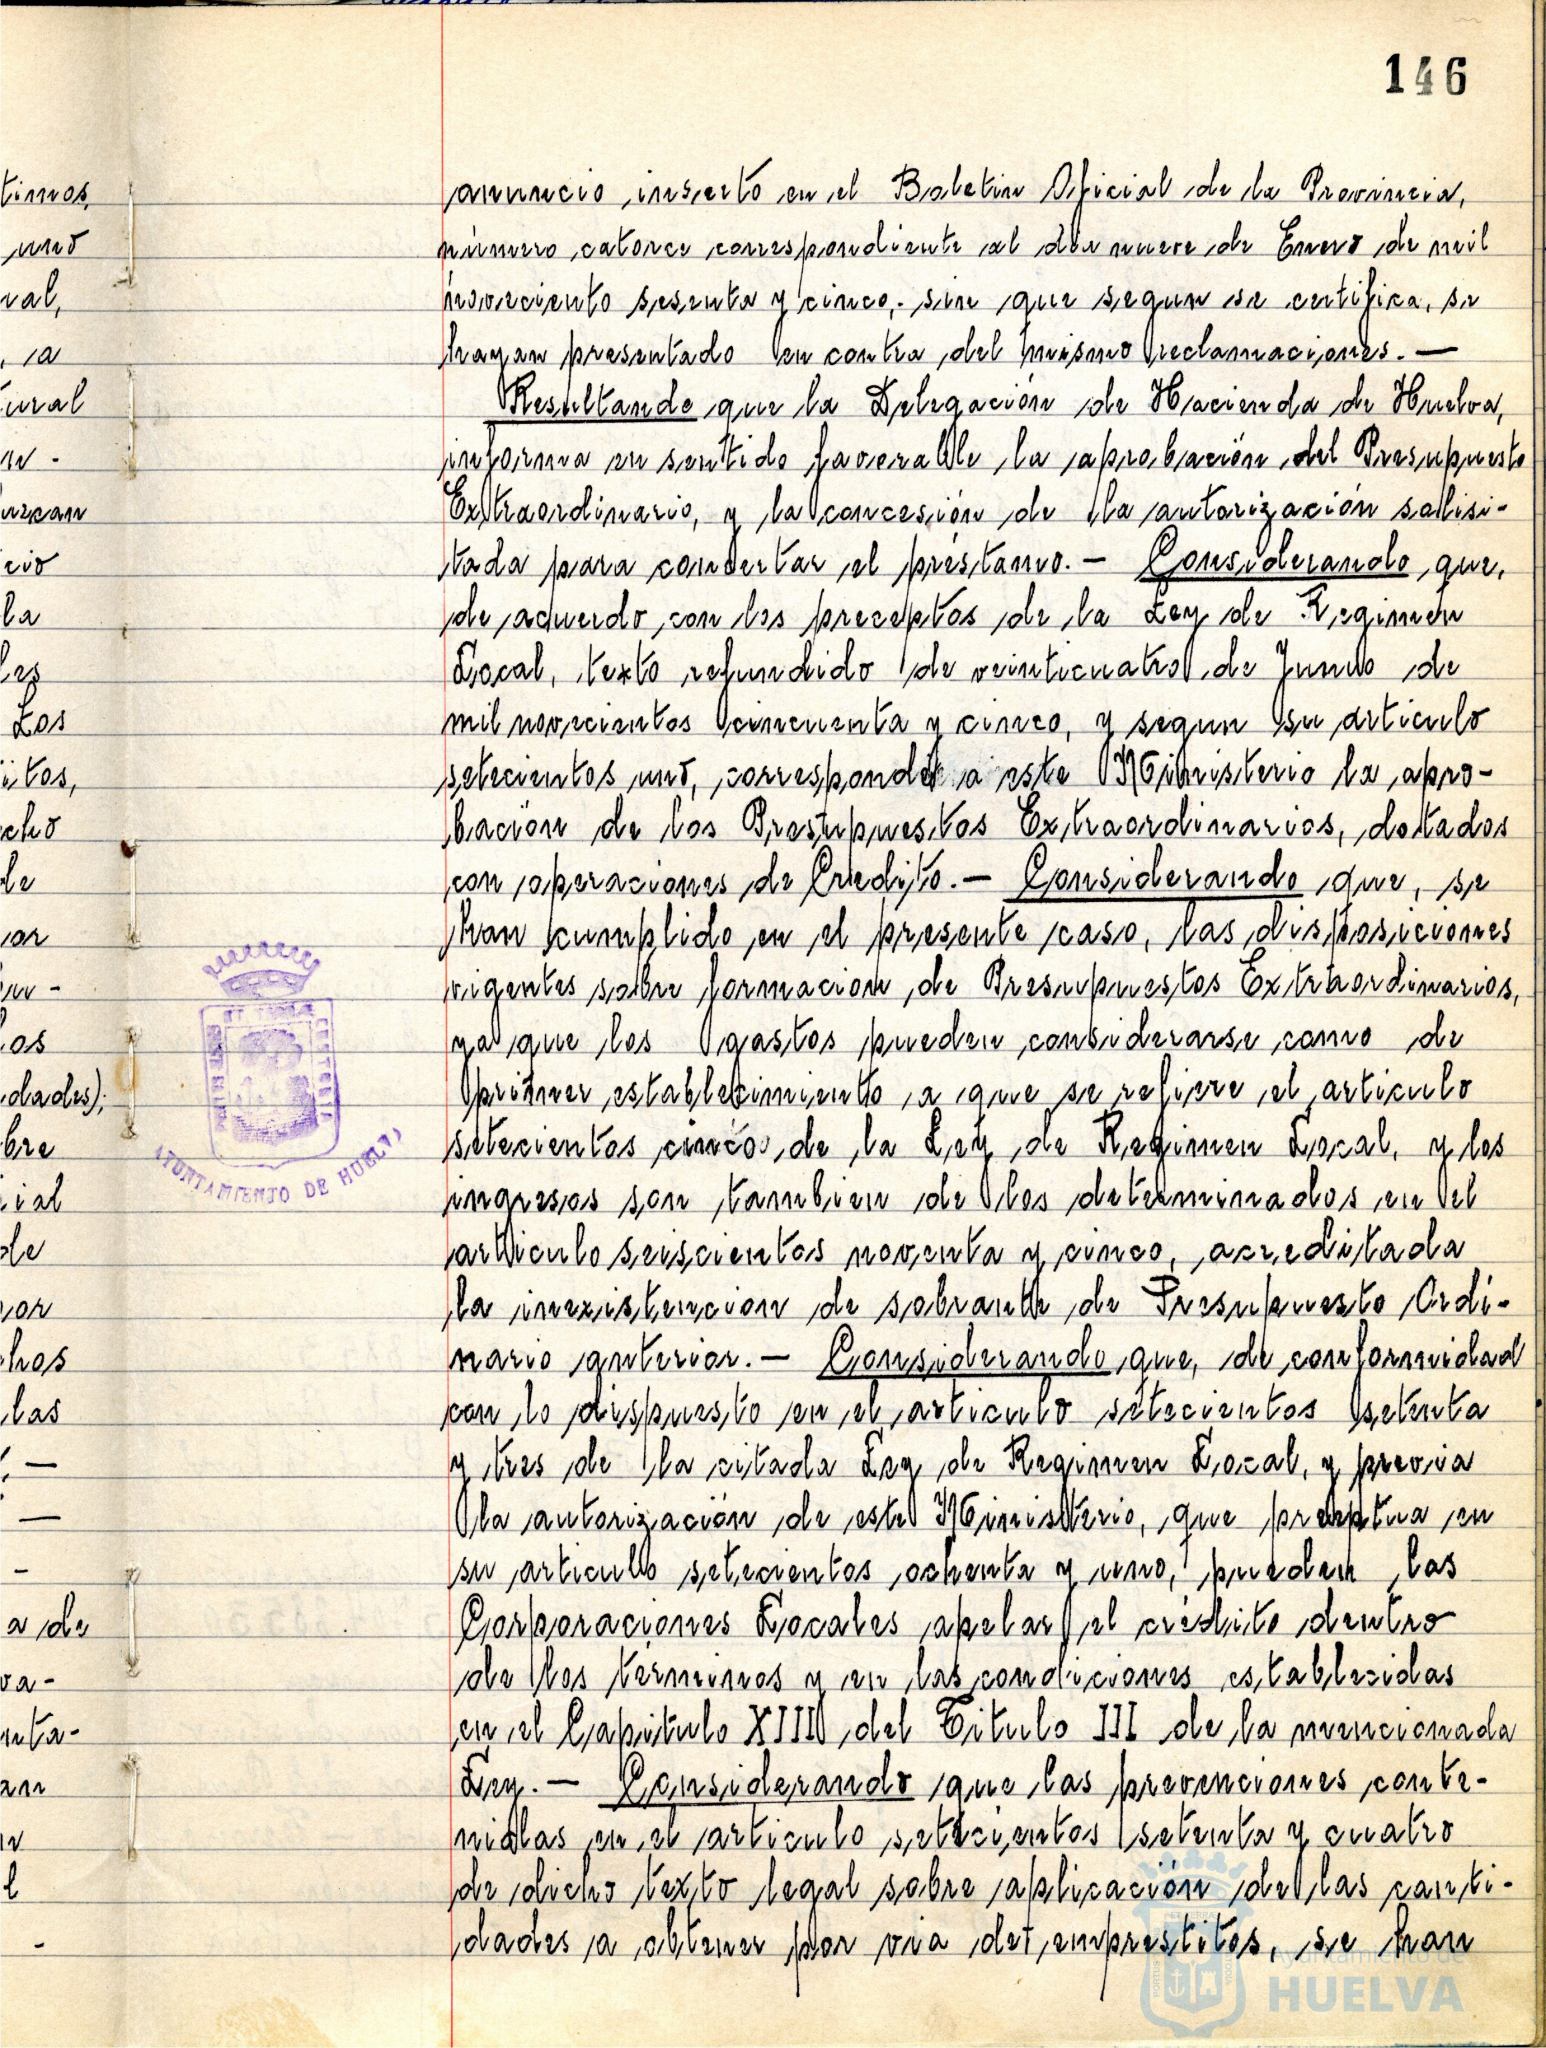 146
anuncio inserto en el Boletin Oficial de la Provincia,
número catorce correspondiente al dia nueve de Enero de mil
novociento sesenta y cinco, sin que segun se certifica, se
hayan presentado en contra del mismo reclamaciones. —
Resultando que la Delegación de Hacienda de Huelva,
informa en sentido favorable la aprobación del Presupuesto
Extraordinario, y la concesión de la autorización sallisi-
tada para concertar el préstamo. — Considerando que,
de acuerdo con los preceptos de la Ley de Regimen
Local, texto refundido de veinticuatro de Junio de
mil novecientos cincuenta y cinco, y segun su articulo
setecientos uno, corresponde a este Ministerio la apro-
bación de los Presupuestos Extraordinarios, dotados
con operaciones de Credito. — Considerando que, se
han cumplido en el presente caso, las disposiciones
vigentes sobre formacion de Presupuestos Extraordinarios,
ya que los gastos pueden considerarse como de
primer establecimiento a que se refiere el articulo
setecientos cinco de la Ley de Regimen Local, y los
ingresos son tambien de los determinados en el
articulo seiscientos noventa y cinco, acreditada
la inexistencion de sobrante de Presupuesto Ordi-
nario anterior. — Considerando que, de conformidad
con lo dispuesto en el articulo setecientos setenta
y tres de la citada Ley de Regimen Local, y previa
la autorización de este Ministerio, que preceptua en
su articulo setecientos ochenta y uno, pueden las
Corporaciones Locales apelar el crédito dentro
de los terminos y en las condiciones establecidas
en el Capitulo XIIII del Titulo III de la mencionada
Ley. — Considerando que las prevenciones conte-
nidas en el articulo setecientos setenta y cuatro
de dicho texto legal sobre aplicación de las canti-
dades a obtener por via de empréstitos, se han
timos,
uno
ral,
, a
tural
cio
la
Los
itos,
cho
de
or
los
dades),
bre
ial
de
hos
las
a de
va-
nta-
AYUNTAMIENTO DE HUELVA
Ayuntamiento de
HUELVA